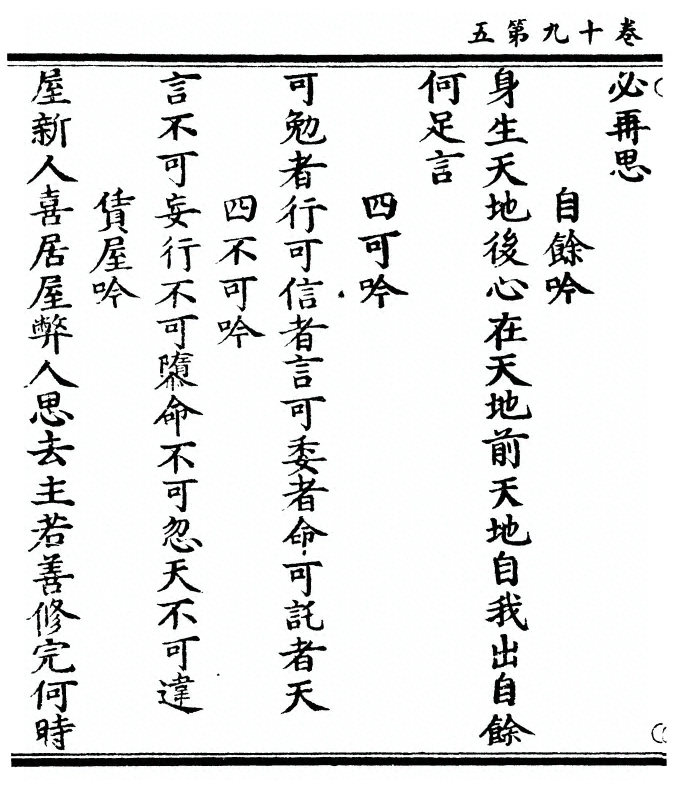 卷十九第五
必再思
自餘吟
身生天地後心在天地前天地自我出自餘
何足言
四可吟
可勉者行可信者言可委者命可託者天
四不可吟
言不可妄行不可隳命不可忽天不可違
賃屋吟
屋新人喜居屋弊人思去主若善修完何時